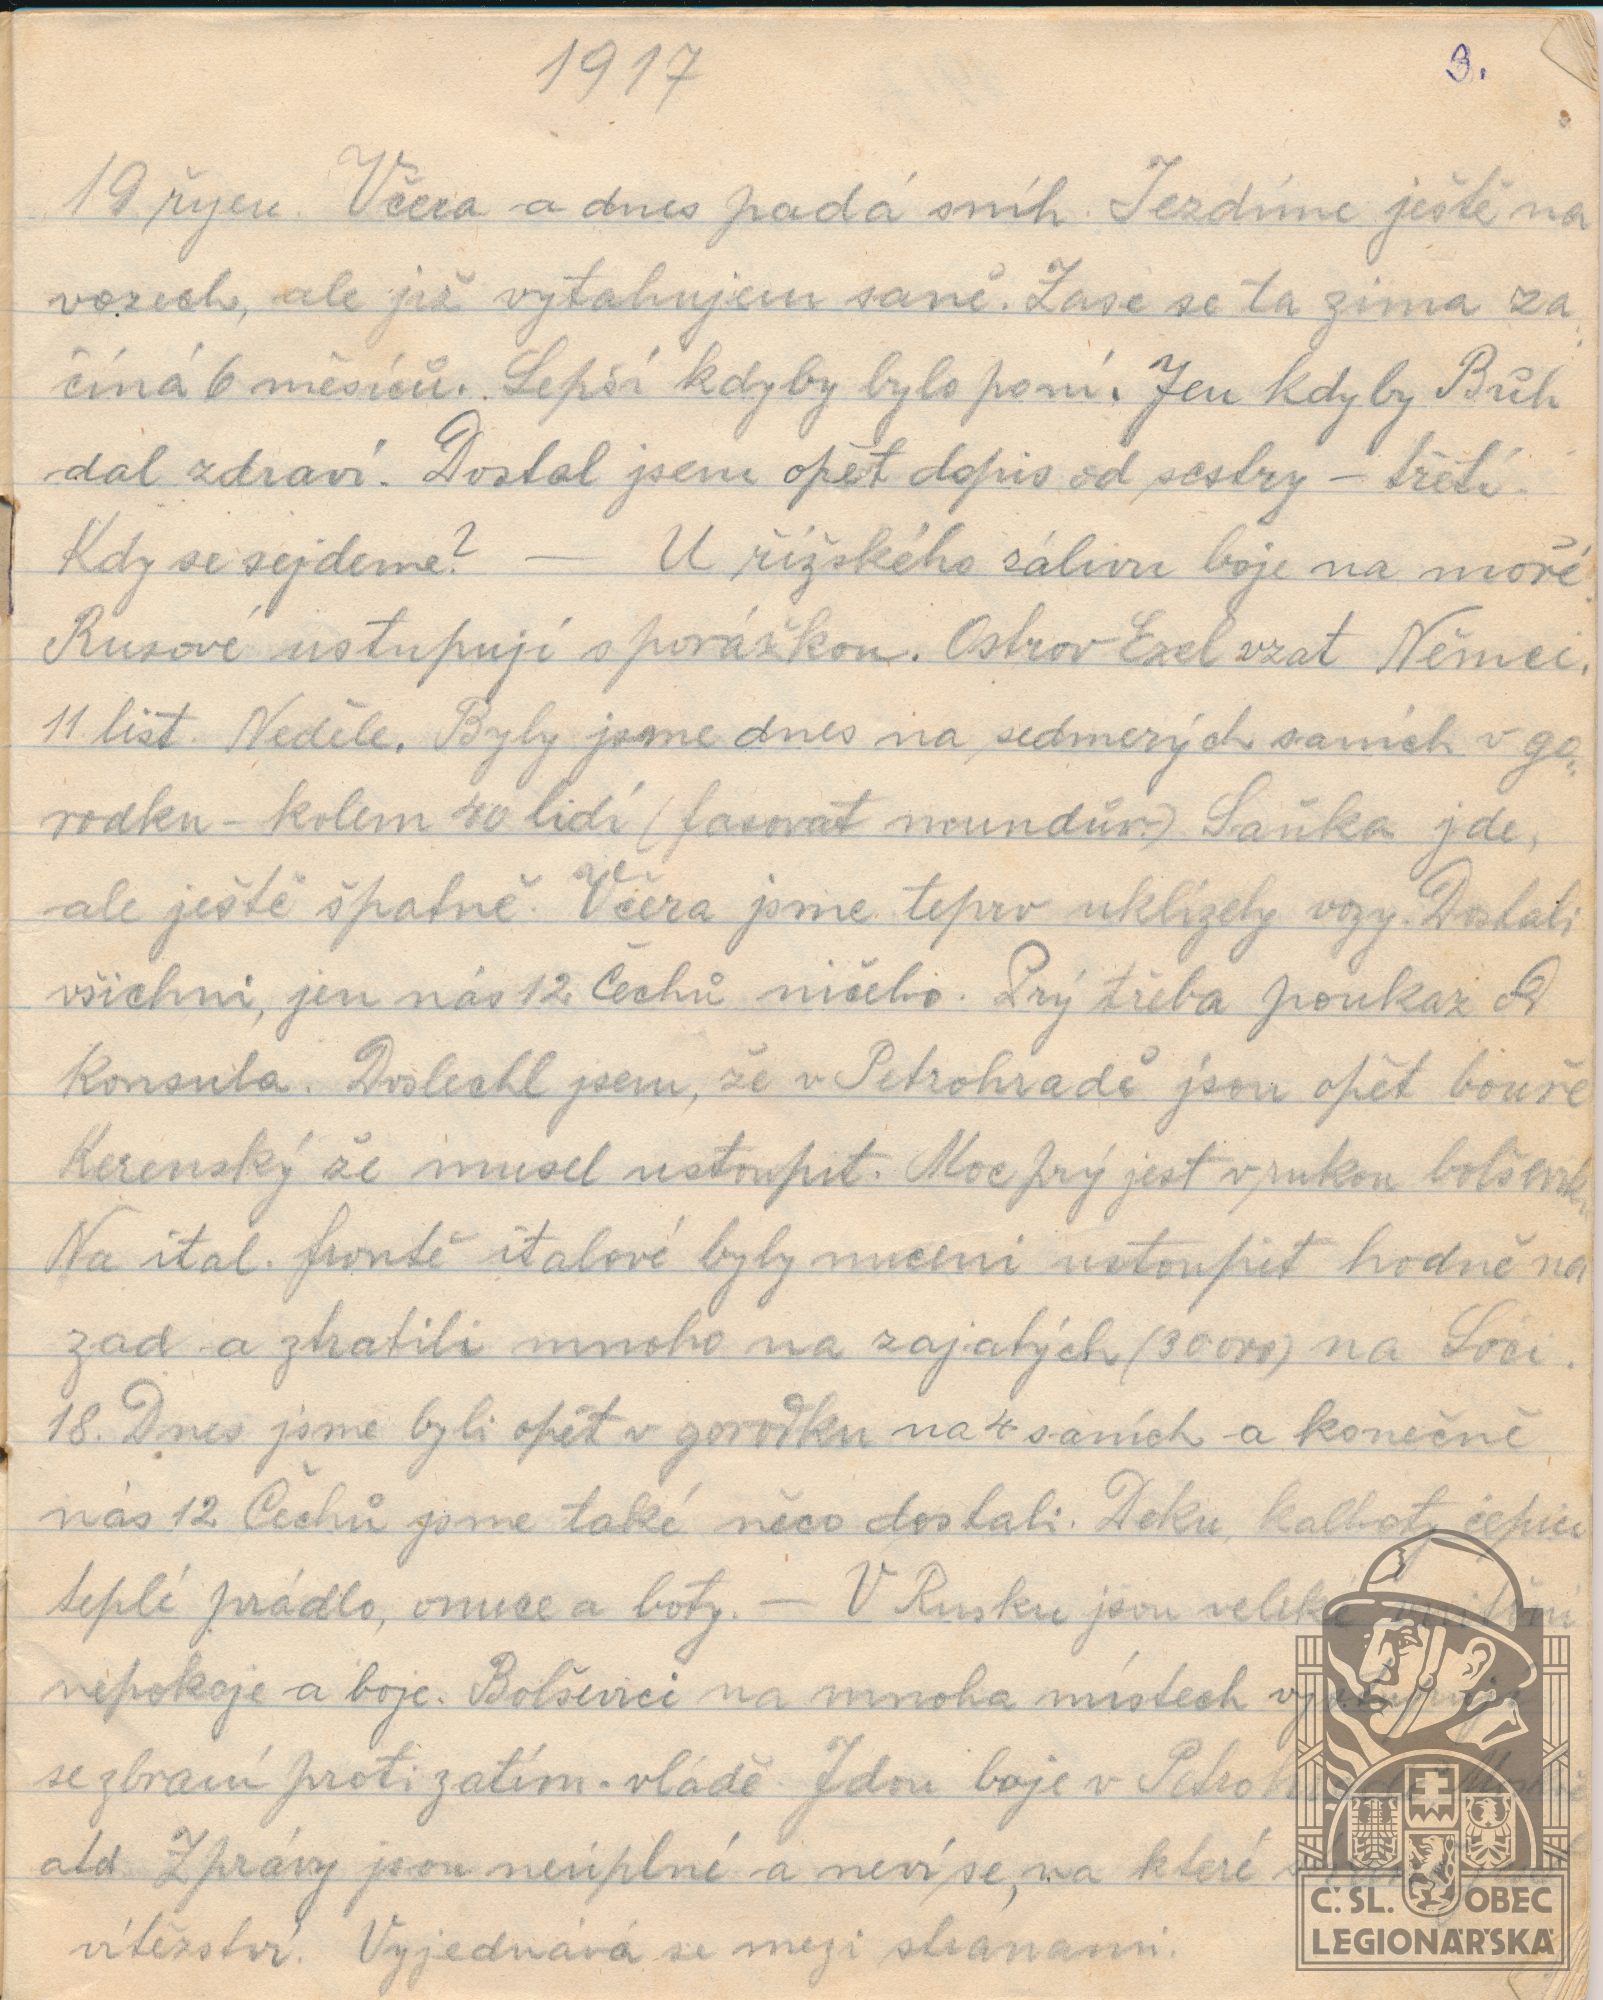 1917
3.
19 řijen. Včera a dnes padá sníh. Jezdíme ještě na
vozech, ale již vytahujem saně. Zase se ta zima za
číná 6 měsíců. Lepší kdyby bylo poní. Jen kdyby Bůh
dal zdraví. Dostal jsem opět dopis od sestry – třetí.
Kdy se sejdeme? — U řižského zálivu boje na moře.
Rusové ustupují s porážkou. Ostrov Ezel vzat Němci.
11 list. Neděle. Byly jsme dnes na sedmerých saních v go„
rodku – kolem 40 lidí (fasovat moundůr) Saňka jde,
ale ještě špatně. Včera jsme teprv uklízely vozy. Dostali
všichni, jen nás 12 Čechů ničeho. Prý třeba poukaz od
Konsula. Doslechl jsem, že v Petrohradě jsou opět bouře
Kerenský že musel ustoupit. Moc prý jest v rukou bolševiků
Na ital. frontě italové byly nuceni ustoupit hodně na
zad a ztratili mnoho na zajatých (30000) na Soči.
18. Dnes jsme byli opět v gorodku na 4 saních a konečně
nás 12 Čechů jsme také něco dostali. Deku, kalhoty čepici
teplé prádlo, onuce a boty. — V Rusku jsou veliké
nepokoje a boje. Bolševici na mnoha místech
se zbraní proti zatím. vládě. Jdou boje v
atd Zprávy jsou neúplné a neví se, na které
vítězství. Vyjednává se mezi stranami.
Č.SL. OBEC
LEGIONÁŘSKÁ